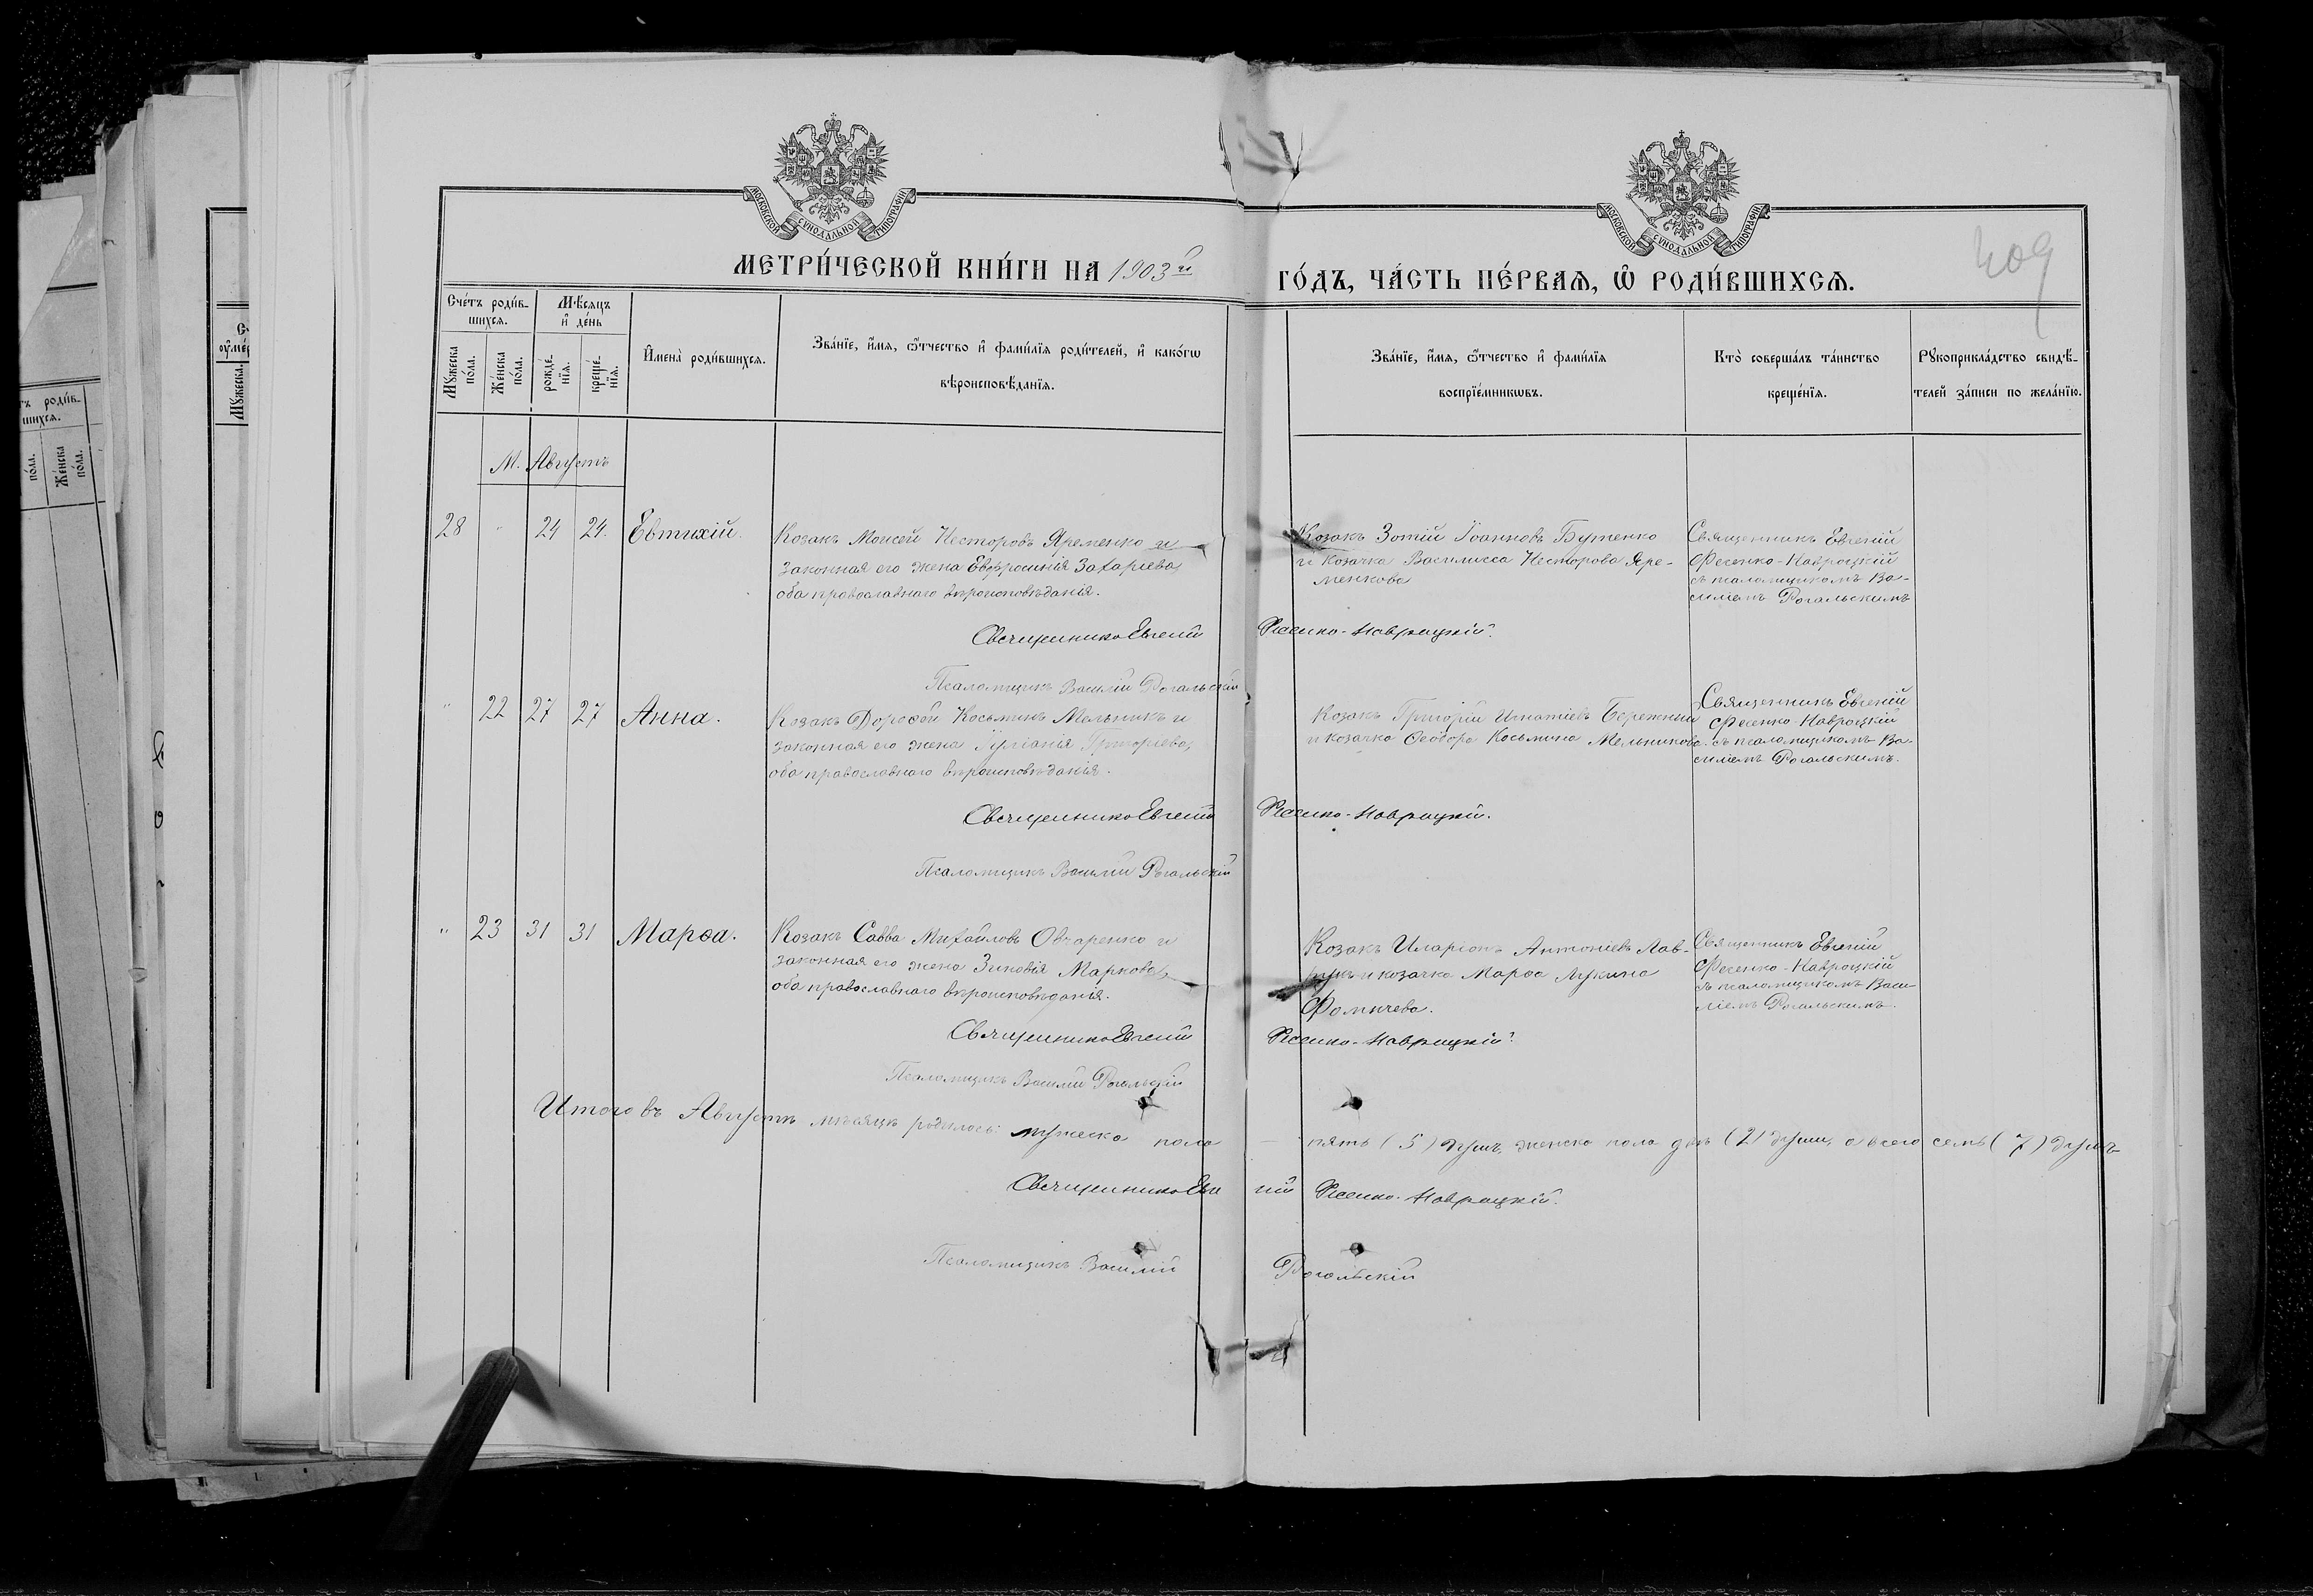 МОСКОВСКОЙ СУНОДАЛЬНОЙ ТИПОГРАФІИ
МОСКОВСКОЙ СУНОДАЛЬНОЙ ТИПОГРАФІИ
МЕТРИ́ЧЕСКОЙ КНИ́ГИ НА 1903й
ГО́ДЪ, ЧА́СТЬ ПЕ́РВАѦ, Ѡ҆ РОДИ́ВШИХСѦ.
409
Сче́тъ роди́в-
шихсѧ.
Мѣ́сѧцъ
и҆ де́нь
Мꙋ́жеска
по́ла.
Же́нска
по́ла.
рожде́-
нїѧ.
креще́-
нїѧ.
И҆мена̀ роди́вшихсѧ.
Зва́нїе, и҆́мѧ, ѻ҆́тчество и҆ фами́лїѧ роди́телей, и҆ како́гѡ
вѣроисповѣ́данїѧ.
Зва́нїе, и҆́мѧ, ѻ҆́тчество и҆ фами́лїѧ
воспрїе́мникѡвъ.
Кто̀ соверша́лъ та́инство
креще́нїѧ.
Рꙋкоприкла́дство свидѣ́-
телей за́писи по жела́нїю.
М. Августъ
28 " 24 24. Евтихій.
Козакъ Моисей Несторовъ Яременко и
законная его жена Евфросинія Захаріева,
оба православнаго вѣроисповѣданія.
Козакъ Зотій Іоанновъ Бутенко
и козачка Василисса Несторова Яре-
менкова
Священникъ Евгеній
Фесенко-Навроцкій
съ псаломщикомъ Ва-
силіемъ Рогальскимъ
Священникъ Евгеній Фесенко-Навроцкій.
Псаломщикъ Василій Рогальскій
" 22 27 27 Анна.
Козакъ Дороѳей Косьминъ Мельникъ и
законная его жена Іуліанія Григоріева,
оба православнаго вѣроисповѣданія.
Козакъ Григорій Игнатіевъ Бережный
и козачка Ѳеодора Косьмина Мельникова.
Священникъ Евгеній
Фесенко-Навроцкій
съ псаломщикомъ Ва-
силіемъ Рогальскимъ.
Священникъ Евгеній Фесенко-Навроцкій.
Псаломщикъ Василій Рогальскій
" 23 31 31 Марѳа.
Козакъ Савва Михайловъ Овчаренко и
законная его жена Зиновія Маркова,
оба православнаго вѣроисповѣданія.
Козакъ Иларіонъ Антоніевъ Лав-
и козачка Марѳа Лукина
Фомичева.
Священникъ Евгеній
Фесенко-Навроцкій
съ псаломщикомъ Васи-
ліемъ Рогальскимъ.
Священникъ Евгеній Фесенко-Навроцкій.
Псаломщикъ Василій Рогальскій
Итого въ Августѣ мѣсяцѣ родилось: мужеска пола — пять (5) душъ, женска пола двѣ (2) души, а всего семь (7) душъ
Священникъ Евгеній Фесенко-Навроцкій.
Псаломщикъ Василій Рогальскій